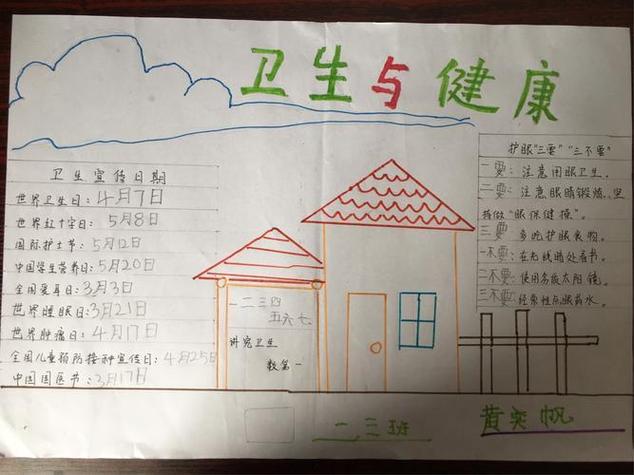 卫生与健康
卫生宣传日期
世界卫生日：4月7日
世界红十字日：5月8日
国际护士节：5月12日
中国学生营养日：5月20日
全国爱耳日：3月3日
世界睡眠日：3月21日
世界肿瘤日：4月17日
全国儿童预防接种宣传日：4月25日
中国国医节：3月17日
一二三四
五六七
讲究卫生
数第一
护眼"三要""三不要"
注意用眼卫生.
二要：注意眼睛锻炼,坚
持做"眼保健操"。
三要 多吃护眼食物。
一不要：在光线暗处看书.
二不要：使用劣质太阳镜.
三不要：经常性点眼药水。
一三班
黄奕帆